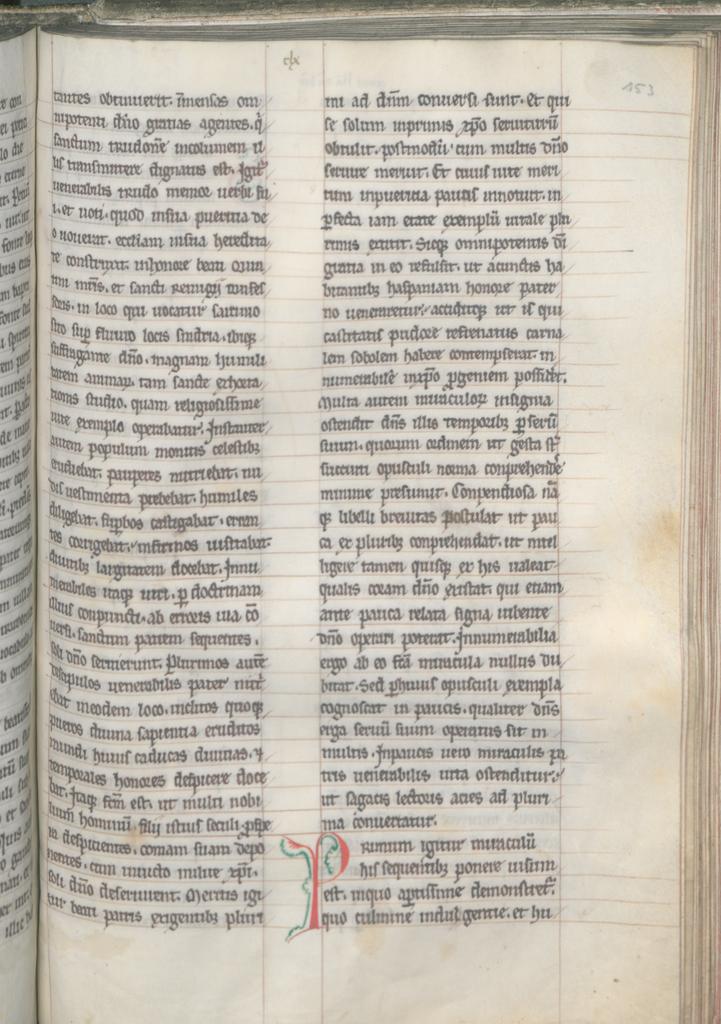 clx
153
tantes obtinuerit. īmensas om
nipotenti dn̄o gratias agentes. q̇
sanctum trudonē incolumem il
lis transmittere dignatus est. Igit᷑
uenerabilis trudo memor uerbi su
i. et uoti. quod insua pueritia de
o nouerat. eccl̄iam insua heredita
te construxit. inhonore beati Quin
tini m̄ris. et sancti Remigij confes
soris. in loco qui uocatur
sito sup̲ fluuio
suffragante dn̄o. magnam humili
tatem animar̄. tam sancte exhorta
tionis studio. quam religiosissime
uite exemplo operabatur. Instanter
autem populum monitis celestibꝫ
erudiebat. pauperes nutriebat. nu
dis uestimenta prebebat. humiles
diligebat. sup̲bos castigabat. erran
tes corrigebat. infirmos uisitabat.
diuitibꝫ largitatem docebat. Innu
merabiles itaqꝫ uiri. p̲ doctrinam
illius conpuncti. ab erroris uia cō
uersi. sanctum patrem sequentes.
soli dn̄o seruierunt. Plurimos autē
discipulos uenerabilis pater nut᷑
ebat ineodem loco. inclitos quoqꝫ
pueros diuina sapientia eruditos
mundi huius caducas diuitias. ⁊
temporales honores despicere doce
bat. Itaqꝫ fc̄m est. ut multi nobi
lium hominū filij istius seculi
a despicientes. comam suam depo
nentes. cum inuicto milite xp̄i.
soli dn̄o deseruirent. Meritis igi
tur beati patris exigentibꝫ pluri
mi ad dn̄m conuersi sunt. Et qui
se solum inprimis xp̄o seruiturū
obtulit. postmodū cum multis dn̄o
seruire meruit. Et cuius uite meri
tum inpuericia paucis innotuit. in
p̲fecta iam etate exemplū uitale plu
rimis extitit. Sicqꝫ omnipotentis dī
gratia in eo refulsit. ut acunctis ha
bitantibꝫ haspaniam honore pater
no ueneraretur. acciditqꝫ ut is qui
castitatis pudore refrenatus carna
lem sobolem habere contempserat. in
numerabilē inxp̄o p̲geniem possidet.
Multa autem miraculor̄ insignia
ostendit dn̄s illis temporibꝫ p̲ seruū
suum. quorum ordinem ut gesta st̄
succincti opusculi norma conprehendē
minime presumit. Conpendiosa nā
qꝫ libelli breuitas postulat ut pau
ca ex pluribꝫ conprehendat. ut intel
ligere tamen quisqꝫ ex his ualeat
qualis coram dn̄o extitat. qui etiam
ante pauca relata signa iubente
dn̄o operari poterat. Innumerabilia
ergo ab eo fc̄a miracula nullus du
bitat. Sed p̲ huius opusculi exempla
cognoscat in paucis. qualiter dn̄s
erga seruū suum operatus sit in
multis. Inpaucis uero miraculis pa
tris uenerabilis uita ostenditur.
ut sagacis lectoris acies ad pluri
ma conuertatur.
Primum igitur miraculū
his sequentibꝫ ponere uisum
est. inquo ap̲tissime demonstret᷑.
quo culmine indulgentie. et hu